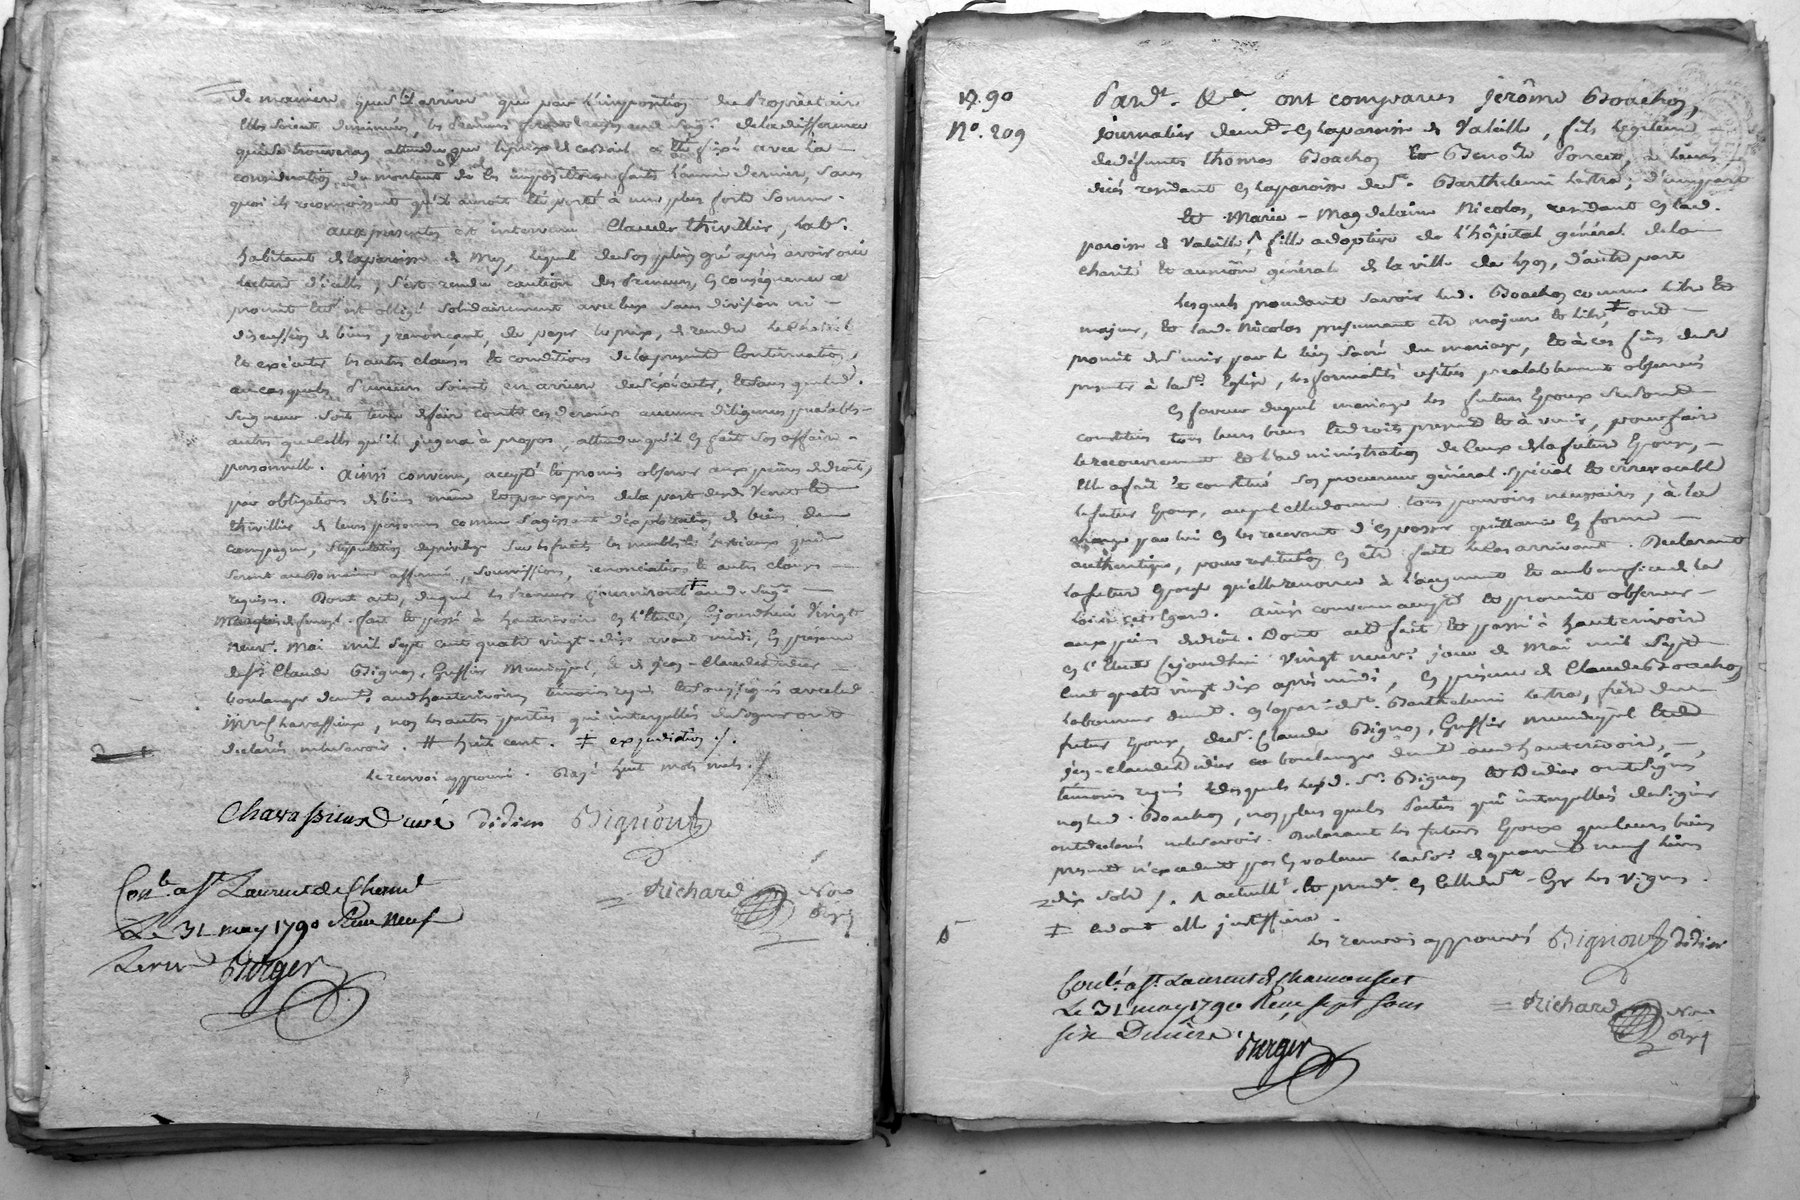 de maniere que s'il arrive que par l'imposition du Propriétaire
elles soient diminuées, les Preneurs seront
qui se trouvera, attendu que le prix est fixé avec la
considération du montant de les impositions faites l'année dernier, sans
quoi ils reconnoissent qu'il auroit été porté à une plus forte somme.
aux présentes est intervenu Claude thivillier, lab.r
habitant de la paroisse de, lequel de son plein gré après avoir oui
lecture d'icelles, s'est rendu caution des Preneurs, en conséquence a
promis et s'est obligé solidairement avec eux sans division ni
discussion de biens, y renonçant, de payer le prix, de rendre
et exécuter les autres clauses et conditions de la présente,
au cas que les Preneurs soient en arriere de l'exécuter, et sans que led.
Seigneur soit tenu de faire contre ces derniers aucunes diligences préalables
autres que celles qu'il jugera à propos, attendu qu'il en fait son affaire
personnelle. Ainsi convenu, accepté et promis observer aux peines de droit,
par obligation de biens même et par exprès de la part desd.
thivillier de leurs personnes comme s'agissant d'exploitation de biens de
campagne, stipulation de privilege sur les fruits les meubles et bestiaux qui
seront au Domaine affermé, soumission, renonciation et autres clauses
requises. Dont acte, duquel les Preneurs fourniront ‡ aud. Seig.r
fait et passé à hauterivoire en l'Etude, cejourdhui vingt
neuf mai mil sept cent quatre vingt-dix avant midi, en présence
de S.r Claude Bignon, Greffier Municipal, et de jean-Claude didier
boulanger dem.t aud hauterivoire, témoins requis et soussignés avec led.
M.re Chavassieux, non les autres parties qui interpellés de signer ont
déclaré ne le savoir. # huit cent. ‡ expédition /.
le renvoi approuvé. Rayé huit mots nuls. /
Chavassieux curé didier Bignon
Richard Not.
Roy.
Con.lé a St. Laurent de Cham.t
Le 31 may 1790 Reçu neuf
Livres Berger
1790
N.o 209
Pard.t &a ont comparus jerôme Boachon,
journalier dem.t en la paroisse de Valeille, fils légitime
de défunts thomas Boachon et Benoite Poncet, à leurs
décès résidant en la paroisse de S.t Barthelemi lestra, d'une part
Et Marie-Magdelaine Nicolas, résidant en lad.
paroisse de Valeille ^ fille adoptive de l'hôpital général de la
Charité et aumône général de la ville de lyon, d'autre part
Lesquels procedant savoir led. Boachon comme libre et
majeur, et lad. Nicolas présumant être majeure et libre ‡ ont
promis de s'unir par le lien sacré du mariage, et à ces fins de se
présenter à la S.te Eglise, les formalités usitées préalablement observées
En faveur duquel mariage les futurs Epoux se sont
constitués tous leurs biens et droits présents et à venir, pour faire
le recouvrement et l'administration de ceux de la future Epouse,
elle a fait et constitué son procureur général spécial et irrévocable
le futur Epoux, auquel elle donne tous pouvoirs nécessaires, à la
charge par lui en les recevant d'en passer quittance en forme
authentique, pour restitution en être fait le cas arrivant. Déclarant
la future Epouse qu'elle renonce à l'augment et au bénéfice de la
loi à cet égard. Ainsi convenu accepté et promis observer
aux peines de droit. Dont acte fait et passé à hauterivoire
en l'Etude cejourdhui vingt neuf. jour de mai mil sept
cent quatre vingt dix après midi, en présence de Claude Boachon
laboureur dem.t en la par. de S.t Barthelemi lestra, frère du
futur Epoux, de S.r Claude Bignon, Greffier municipal et de
jean-Claude Didier boulanger dem.t aud hauterivoire,
témoins requis desquels lesd. S.rs Bignon et Didier ont signé,
non led. Boachon, non plus que les Parties qui interpellés de signer
ont déclaré ne le savoir. Déclarant les futurs Epoux que leurs biens
présents n'excedent pas en valeur la so.e de quarante neuf livres
dix sols /. ^ actuell.t et précéd.t en celle de S.t Cyr les vignes.
‡ ce dont elle justifiera.
les renvois approuvés Bignon didier
Richard Not.
Roy.
Con.lé a St. Laurent de Chamousset
Le 31 may 1790 Reçu sept sous
six Deniers. Berger